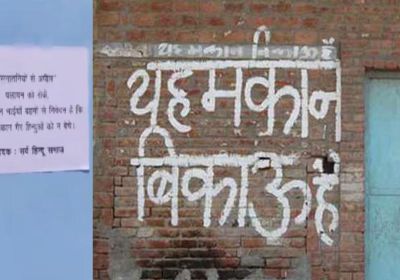 से अपील"
पलायन को रोके,
भाईयों बहनों से निवेदन है कि
गैर हिन्दुओं को न बेचे।
: सर्व हिन्दू समाज
यह मकान बिकाऊ है
यह मकान
बिकाऊ है